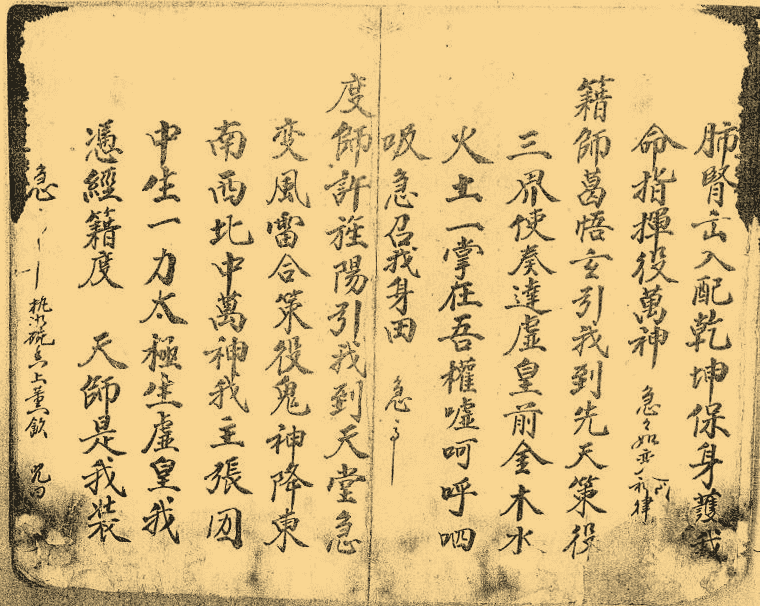 肺腎云入配乾坤保身護我
命指揮役萬神 急々如
律
籍師葛悟玄引我到先天策役
三界使奏達虛皇前金木水
火土一掌在吾權噓呵呼呬
吸急召我身田 急
度師許旌陽引我到天堂急
变風雷合策役鬼神降東
南西北中萬神我主張囙
中生一力太極生虛皇我
憑經籍度 天師是我裝
急
上薰飲 咒曰